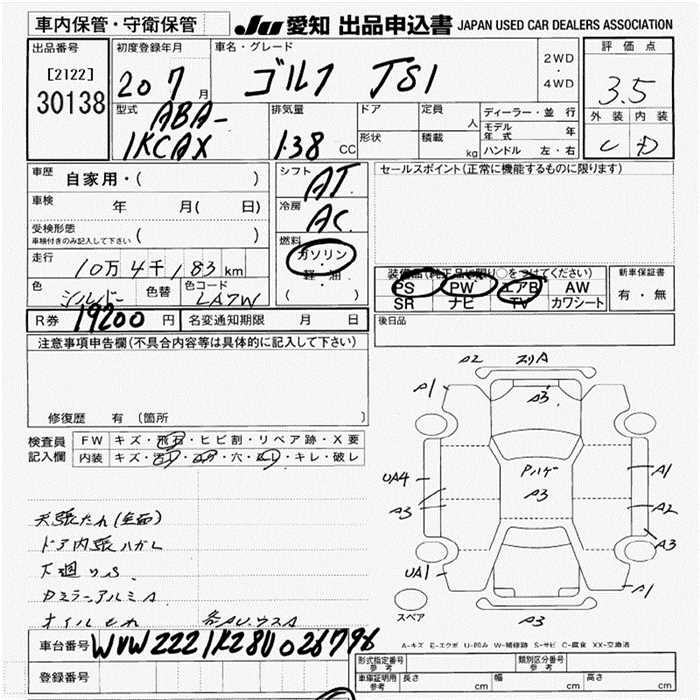 車内保管・守衛保管
JU 愛知 出品申込書 JAPAN USED CAR DEALERS ASSOCIATION
出品番号
[2122]
30138
初度登録年月
20 7 月
車名・グレード
ゴルフ TSI
2WD
・
4WD
評価点
3.5
外装 内装
C D
型式
ABA-
1KCAX
排気量
1.38 CC
ドア
形状
定員
人
積載
kg
ディーラー・並行
モデル年式 年
ハンドル 左・右
車歴
自家用・( )
車検 年 月( 日)
受検形態
車検付きのみ記入して下さい ( )
走行
10万 4千 183 km
色
シルバー
色替
色コード
LA7W
シフト
AT
冷房
AC
燃料
ガソリン
・
軽・油
( )
セールスポイント(正常に機能するものに限ります)
装備品(純正品に限り○をつけてください)
PS PW エアB AW
SR ナビ TV カワシート
新車保証書
有・無
R券 19200 円
名変通知期限 月 日
後日品
注意事項申告欄(不具合内容等は具体的に記入して下さい)
修復歴 有 (箇所 )
検査員
記入欄
FW キズ・飛石・ヒビ割・リペア跡・X要
内装 キズ・汚レ・ ・穴・ ・キレ・破レ
天張たれ(全面)
ドア内張ハガレ
下廻りS
カミラーアルミA
オイルもれ
A2 スリA
A1
A3
A1
UA4
A3
Pハゲ
A3
A1
A2
A3
UA1
A1
A3
スペア
A-キズ E-エクボ U-凹み W-補修跡 S-サビ C-腐食 XX-交換済
車台番号 WVWZZZ1KZ8U026796
登録番号
形式指定番号
参考
類別区分番号
参考
車庫証明用
参考
長さ cm
幅 cm
高さ cm